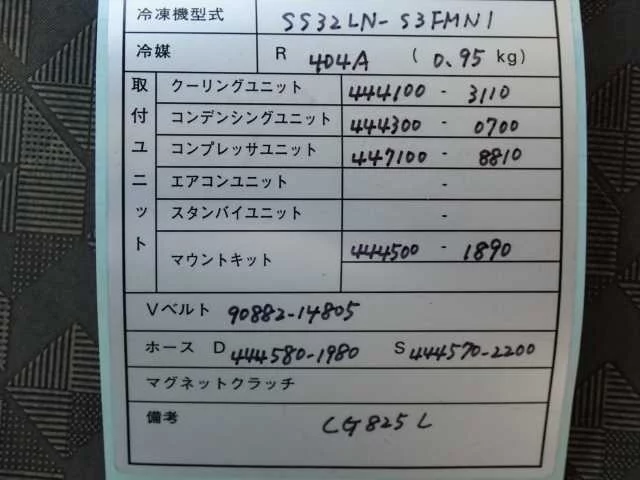 冷凍機型式 SS32LN-S3FMN1
冷媒 R 404A ( 0.95 kg)
取付ユニット
クーリングユニット 444100 - 3110
コンデンシングユニット 444300 - 0700
コンプレッサユニット 447100 - 8810
エアコンユニット -
スタンバイユニット -
マウントキット 444500 - 1890
Vベルト 90882-14805
ホース D 444580-1980 S 444570-2200
マグネットクラッチ
備考 LG825L